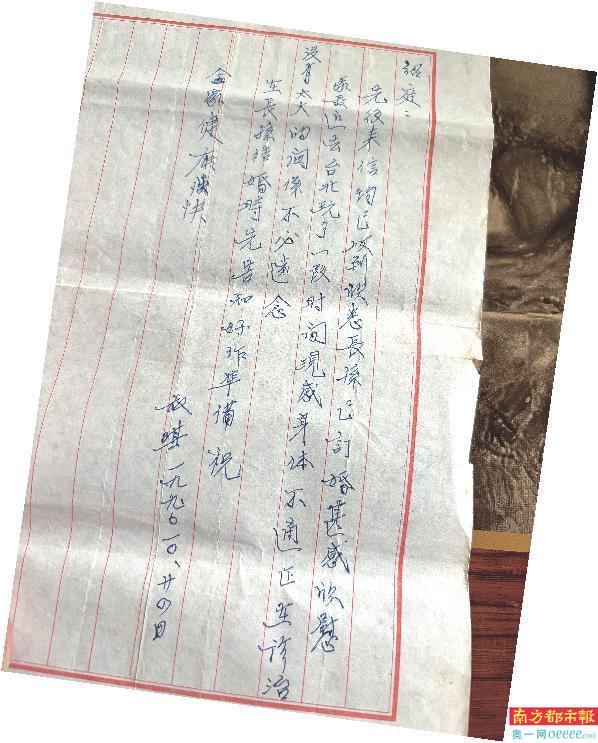 绍庭：
先后来信均已收到欣悉長孫已訂婚甚感欣慰
最近去台北玩了一段时间現感身体不適正在診治
没有太大的関係不必遠念
在長孫結婚時先告知好作準備 祝
全家健康愉快
成騏 一九九〇、一〇、廿四日
南方都市報
奥一网oeeee.com